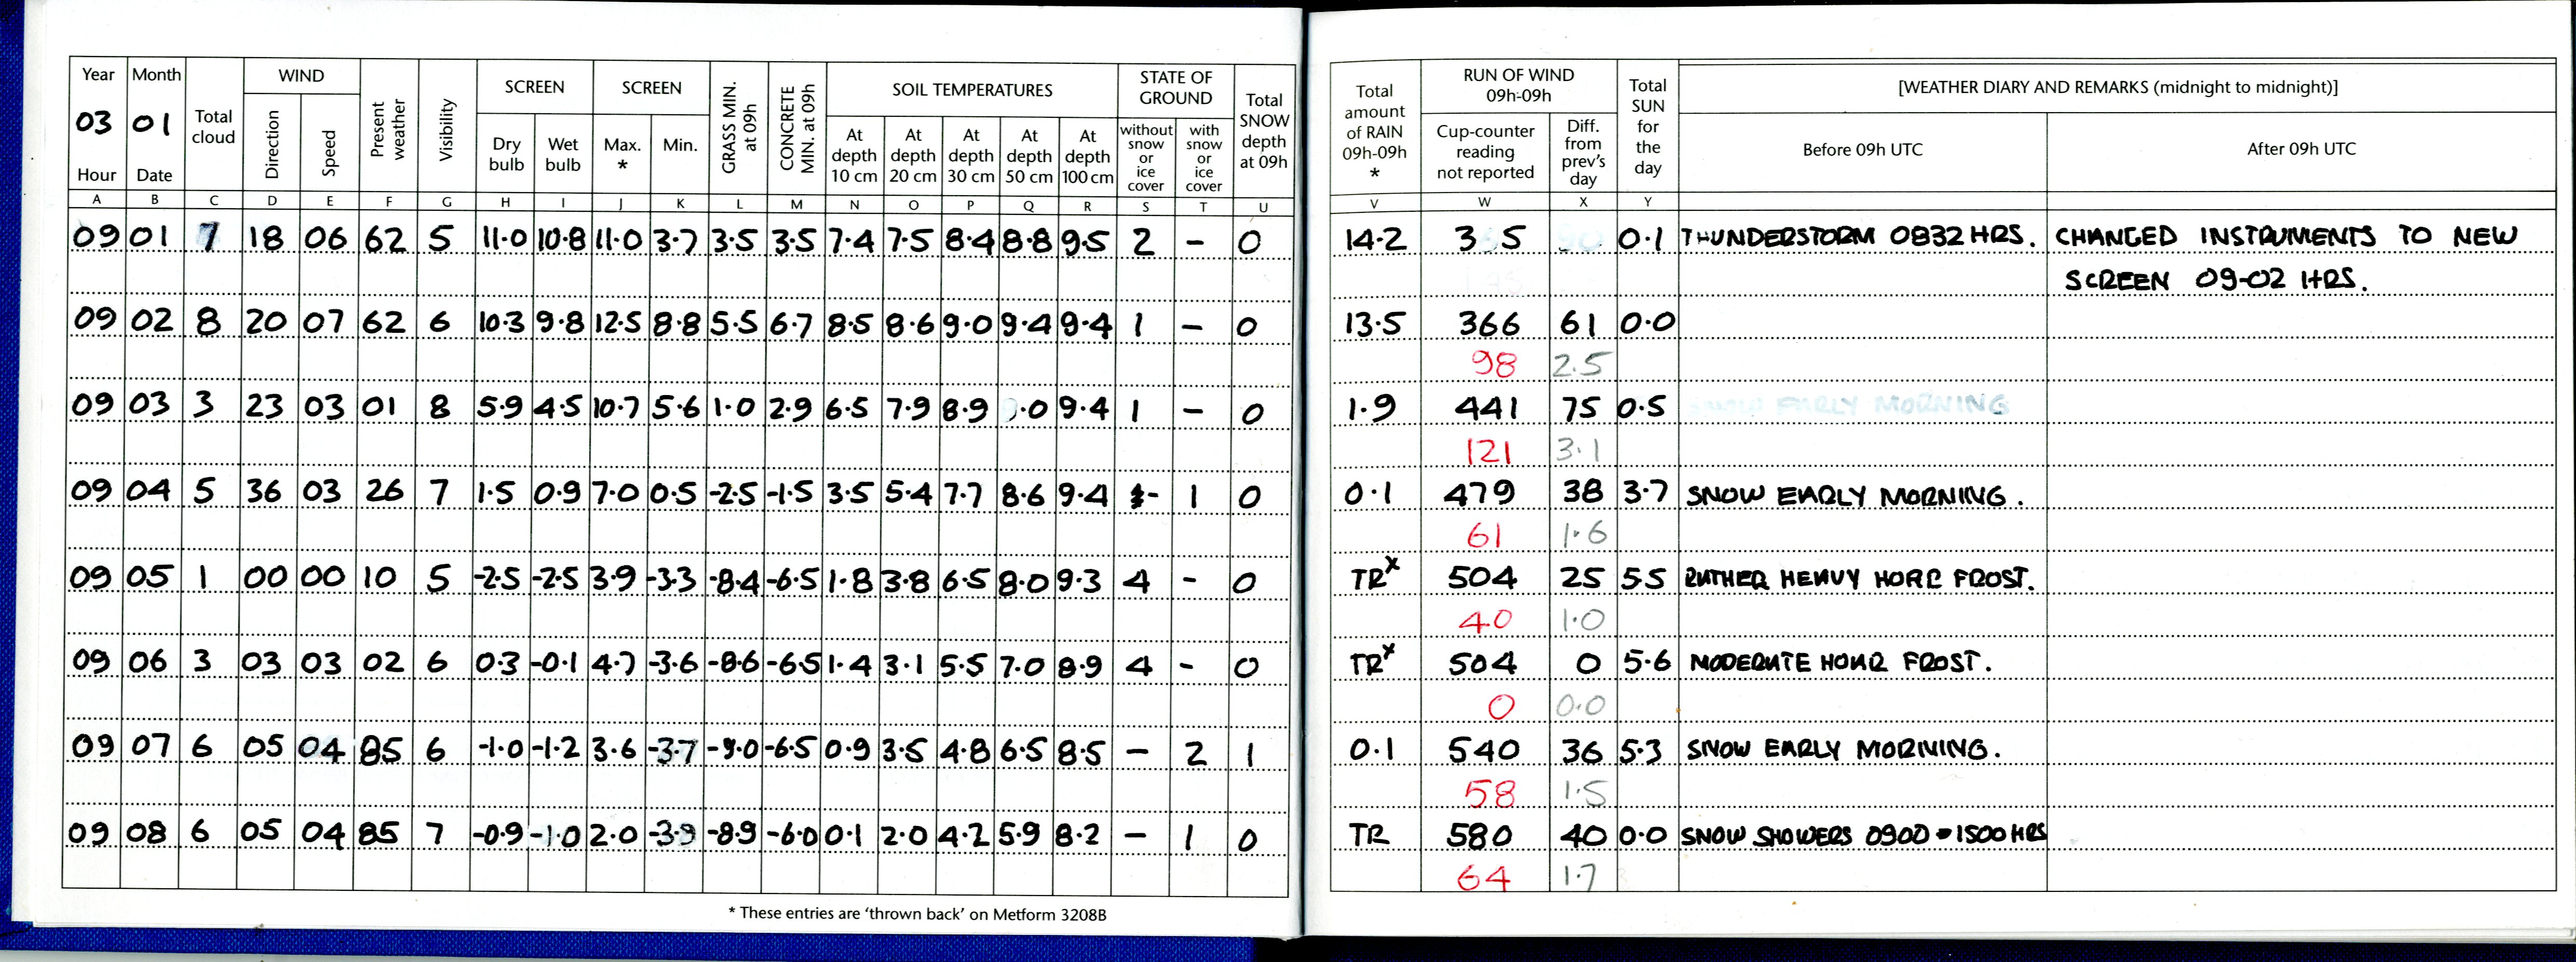 Year Month Total cloud WIND Present weather Visibility SCREEN SCREEN GRASS MIN. at 09h CONCRETE MIN. at 09h SOIL TEMPERATURES STATE OF GROUND Total SNOW depth at 09h
03 01 Direction Speed Dry bulb Wet bulb Max. * Min. At depth 10 cm At depth 20 cm At depth 30 cm At depth 50 cm At depth 100 cm without snow or ice cover with snow or ice cover
Hour Date
A B C D E F G H I J K L M N O P Q R S T U
09 01 7 18 06 62 5 11.0 10.8 11.0 3.7 3.5 3.5 7.4 7.5 8.4 8.8 9.5 2 - 0
09 02 8 20 07 62 6 10.3 9.8 12.5 8.8 5.5 6.7 8.5 8.6 9.0 9.4 9.4 1 - 0
09 03 3 23 03 01 8 5.9 4.5 10.7 5.6 1.0 2.9 6.5 7.9 8.9 .0 9.4 1 - 0
09 04 5 36 03 26 7 1.5 0.9 7.0 0.5 -2.5 -1.5 3.5 5.4 7.7 8.6 9.4 - 1 0
09 05 1 00 00 10 5 -2.5 -2.5 3.9 -3.3 -8.4 -6.5 1.8 3.8 6.5 8.0 9.3 4 - 0
09 06 3 03 03 02 6 0.3 -0.1 4.7 -3.6 -8.6 -6.5 1.4 3.1 5.5 7.0 8.9 4 - 0
09 07 6 05 04 85 6 -1.0 -1.2 3.6 -3.7 -9.0 -6.5 0.9 3.5 4.8 6.5 8.5 - 2 1
09 08 6 05 04 85 7 -0.9 -1.0 2.0 -3.9 -8.9 -6.0 0.1 2.0 4.2 5.9 8.2 - 1 0
* These entries are 'thrown back' on Metform 3208B
Total amount of RAIN 09h-09h * RUN OF WIND 09h-09h Total SUN for the day [WEATHER DIARY AND REMARKS (midnight to midnight)]
Cup-counter reading not reported Diff. from prev's day Before 09h UTC After 09h UTC
V W X Y
14.2 3 5 0.1 THUNDERSTORM 0832 HRS. CHANGED INSTRUMENTS TO NEW
SCREEN 09-02 HRS.
13.5 366 61 0.0
98 2.5
1.9 441 75 0.5 SNOW EARLY MORNING
121 3.1
0.1 479 38 3.7 SNOW EARLY MORNING.
61 1.6
TRx 504 25 5.5 RATHER HEAVY HORE FROST.
40 1.0
TRx 504 0 5.6 MODERATE HOAR FROST.
0 0.0
0.1 540 36 5.3 SNOW EARLY MORNING.
58 1.5
TR 580 40 0.0 SNOW SHOWERS 0900-1500 HRS
64 1.7